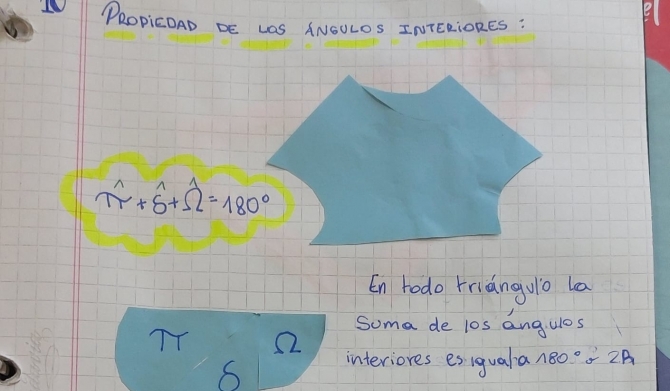 PROPIEDAD DE LOS ÁNGULOS INTERIORES:
π̂ + δ̂ + Ω̂ = 180°
En todo triángulo la
Suma de los ángulos
interiores es igual a 180° ó 2R
π Ω
δ